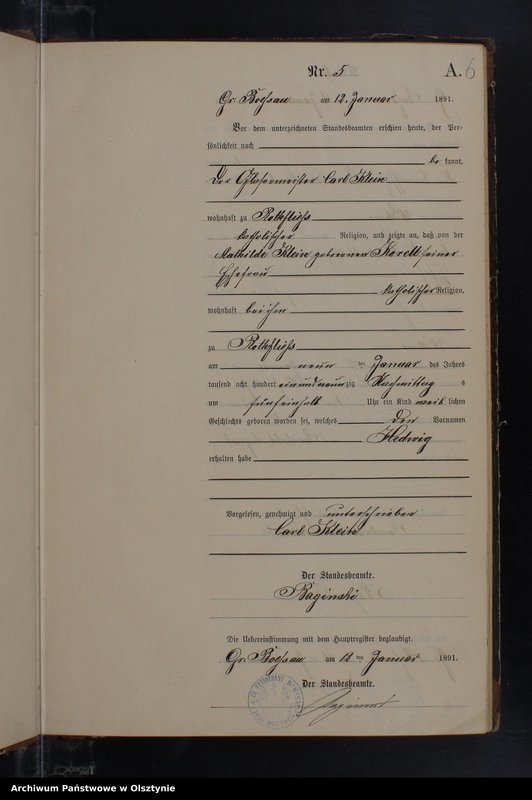 Nr. 5
A. 6
Gr. Boessau am 12. Januar 1891.
Vor dem unterzeichneten Standesbeamten erschien heute, der Per-
sönlichkeit nach
be kannt,
Der Glasermeister Carl Klein
wohnhaft zu Rothfließ
katholischer Religion, und zeigte an, daß von der
Mathilde Klein geborenen Korell seiner
Ehefrau
katholischer Religion,
wohnhaft bei ihm
zu Rothfließ
am neun ten Januar des Jahres
tausend acht hundert einundneunzig Nachmittags
um fünfeinhalb Uhr ein Kind weib lichen
Geschlechts geboren worden sei, welches den Vornamen
Hedwig
erhalten habe
Vorgelesen, genehmigt und unterschrieben
Carl Klein
Der Standesbeamte.
Baginski
Die Uebereinstimmung mit dem Hauptregister beglaubigt.
Gr. Boessau am 12 ten Januar 1891.
Der Standesbeamte.
Baginski
Archiwum Państwowe w Olsztynie